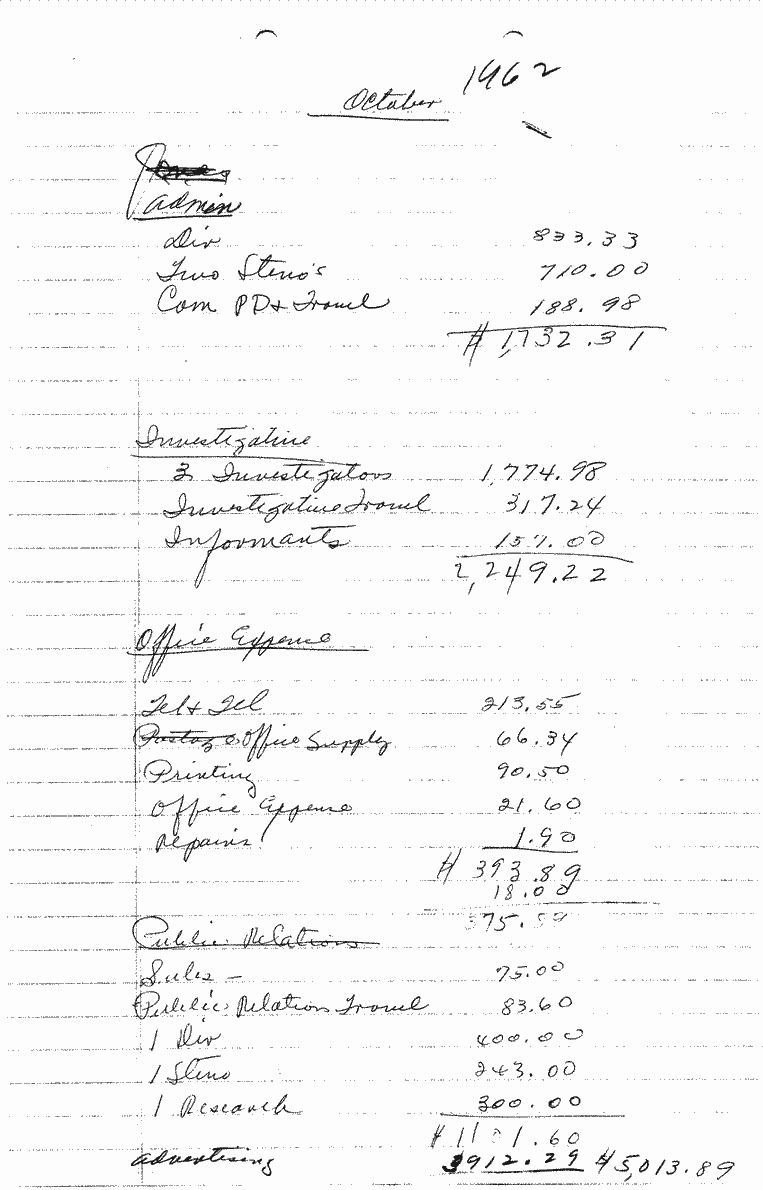 October 1962
Admin
Dir 833.33
Two Steno's 710.00
Com PD+ Travel 188.98
$ 1,732.31
Investigative
3 Investigators 1,774.98
Investigative Travel 317.24
Informants 157.00
2,249.22
Office Expense
Tel + Tel 213.55
Postage Office Supply 66.34
Printing 90.50
Office Expense 21.60
Repairs 1.90
$ 393.89
18.00
375.89
Public Relations
Subs - 75.00
Public Relation Travel 83.60
1 Dir 400.00
1 Steno 243.00
1 Research 300.00
$ 1101.60
Advertising 3912.29 $5,013.89